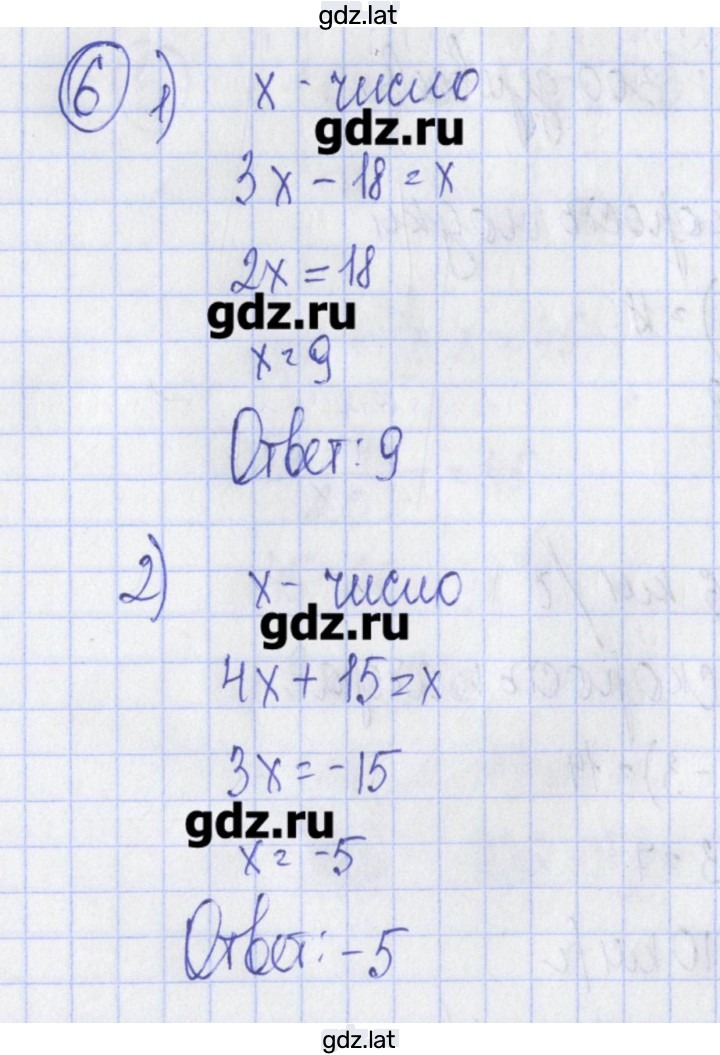 gdz.lat
6 1) x - число
gdz.ru
3x - 18 = x
2x = 18
gdz.ru
x = 9
Ответ: 9
2) x - число
gdz.ru
4x + 15 = x
3x = -15
gdz.ru
x = -5
Ответ: -5
gdz.lat